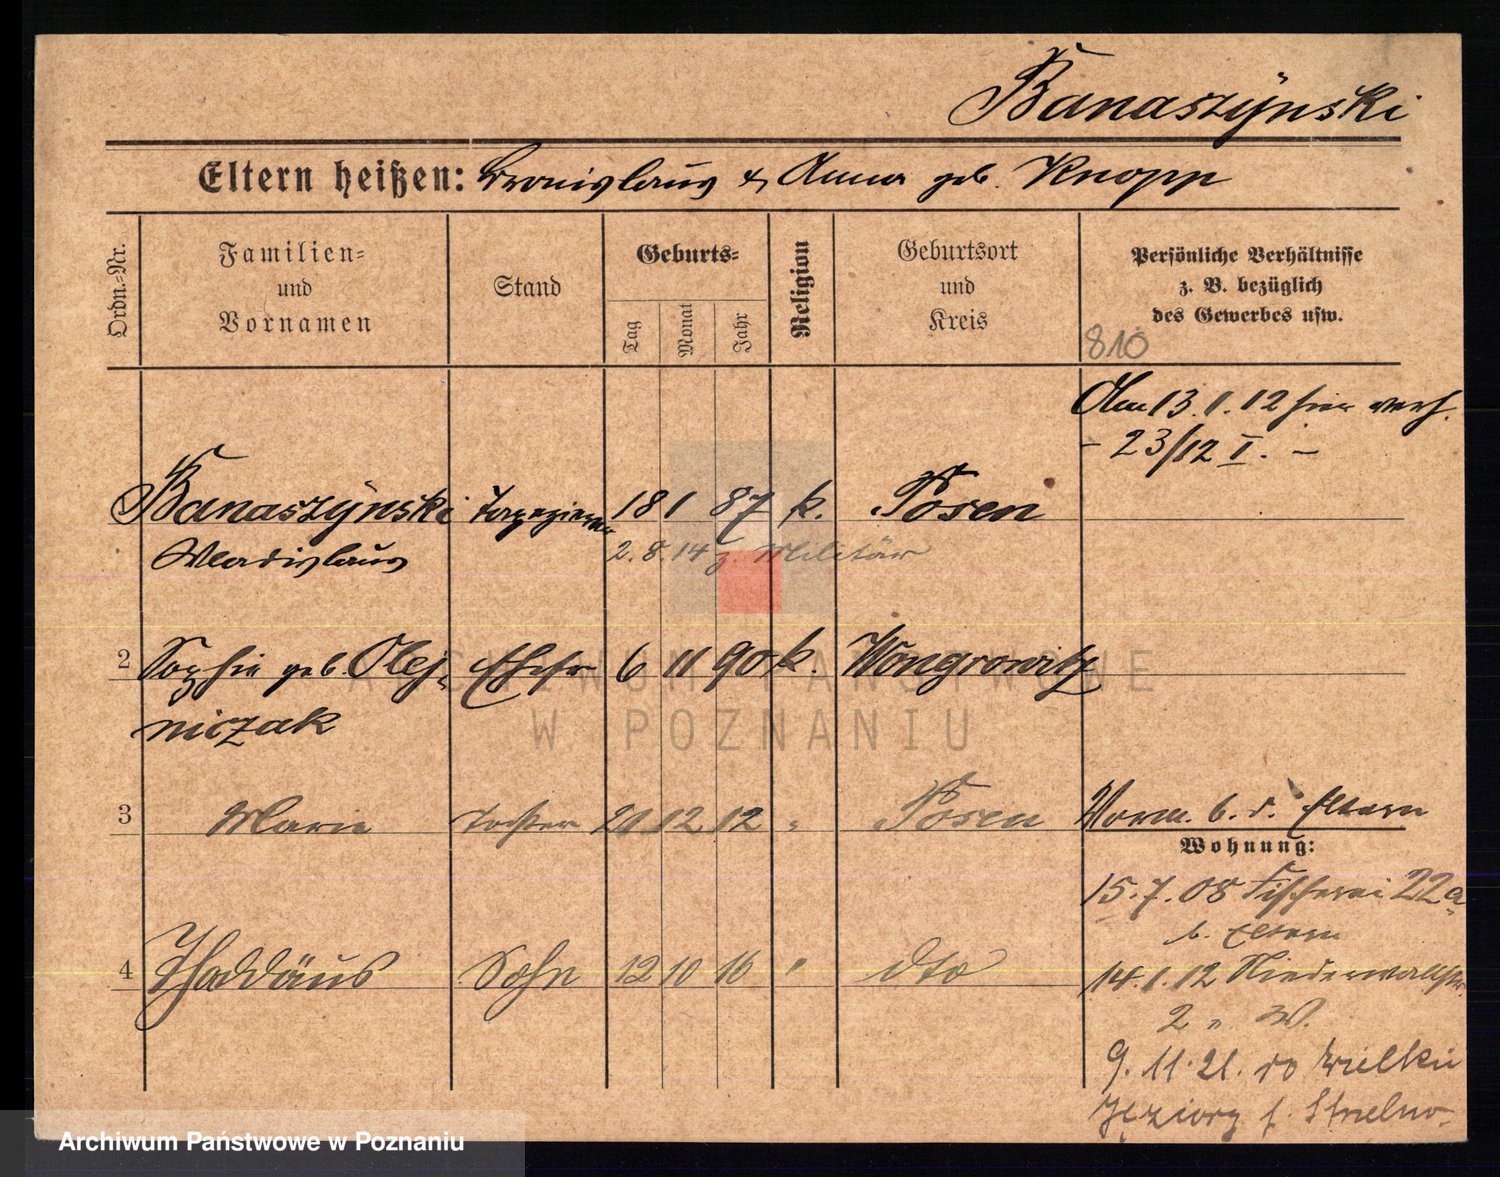 Banaszÿnski
Eltern heißen: Bronislaus & Anna geb. Knopp
Ordn.-Nr.
Familien-
und
Vornamen
Stand
Geburts-
Tag
Monat
Jahr
Religion
Geburtsort
und
Kreis
Persönliche Verhältnisse
z. B. bezüglich
des Gewerbes usw.
810
Am 13.1.12 hier verh.
- 23/12 I. -
Banaszÿnski Tapezierer 18 1 87 k. Posen
Wladislaus 2.8.14 z. Militär
2 Sophie geb. Olej- Ehefr 6 11 90 k. Wongrowitz
niczak
3 Marie Tochter 20 12 12 " Posen
Vorm. b. d. Eltern
Wohnung:
15.7.08 Fischerei 22a
b. Eltern
4 Thaddäus Sohn 12 10 16 " dto
14.1.12 Niederwallstr.
2 " W.
9.11.21. do Wielkie
Jeziory p. Strzelno.
ARCHIWUM PAŃSTWOWE
W POZNANIU
Archiwum Państwowe w Poznaniu